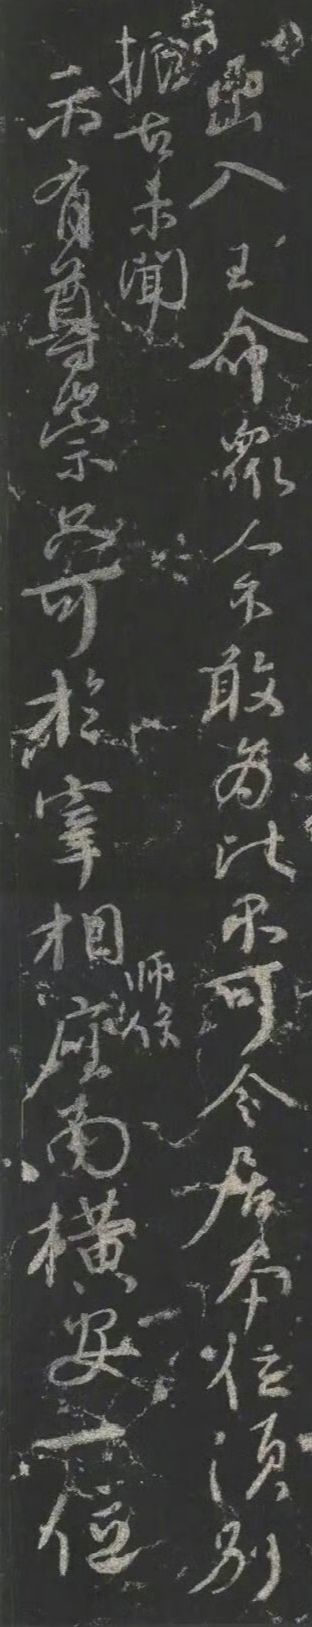 出入王命眾人不敢為比不可令居本位須別
振古未聞
師保
示有尊崇只可於宰相座南橫安一位